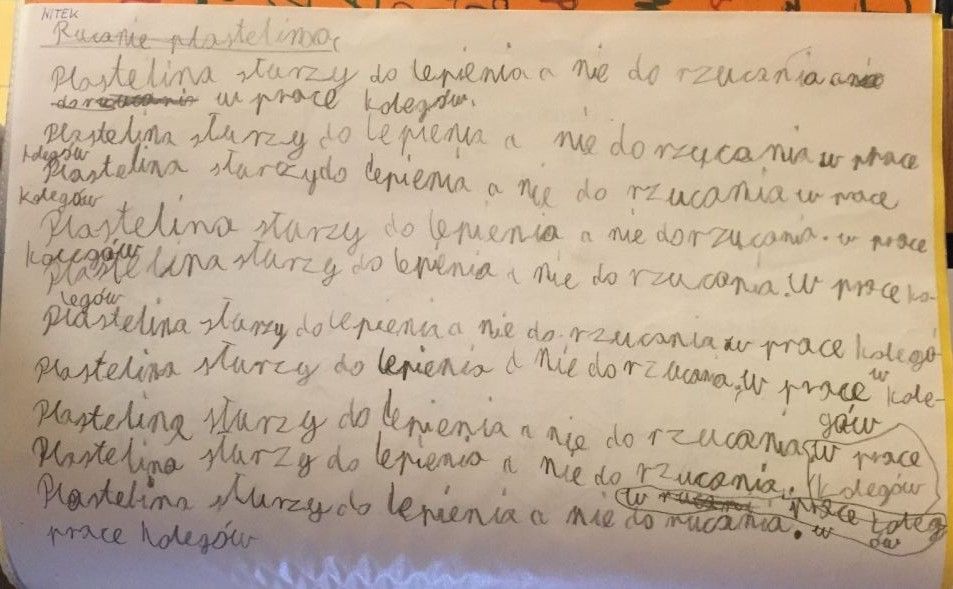 NITEK
Rucanie plastelino,
Plastelina sturzy do lepienia a nie do rzucania a nie
do rzucania w prace kolegów.
Plastelina sturzy do lepienia a nie do rzucania w prace
kolegów
Plastelina sturzy do lepienia a nie do rzucania w race
kolegów
Plastelina sturzy do lepienia a nie do rzucania. w prace
kolegów
Plastelina sturzy do lepienia a nie do rzucania. w prace ko-
legów
Plastelina sturzy do lepienia a nie do rzucania w prace kolegó
w
Plastelina sturzy do lepienia a nie do rzucania. w prace kole-
gów
Plastelina sturzy do lepienia a nie do rzucania w prace
kolegów
Plastelina sturzy do lepienia a nie do rzucania.
w prace koleg
ów
Plastelina sturzy do lepienia a nie do rucania. w
prace kolegów